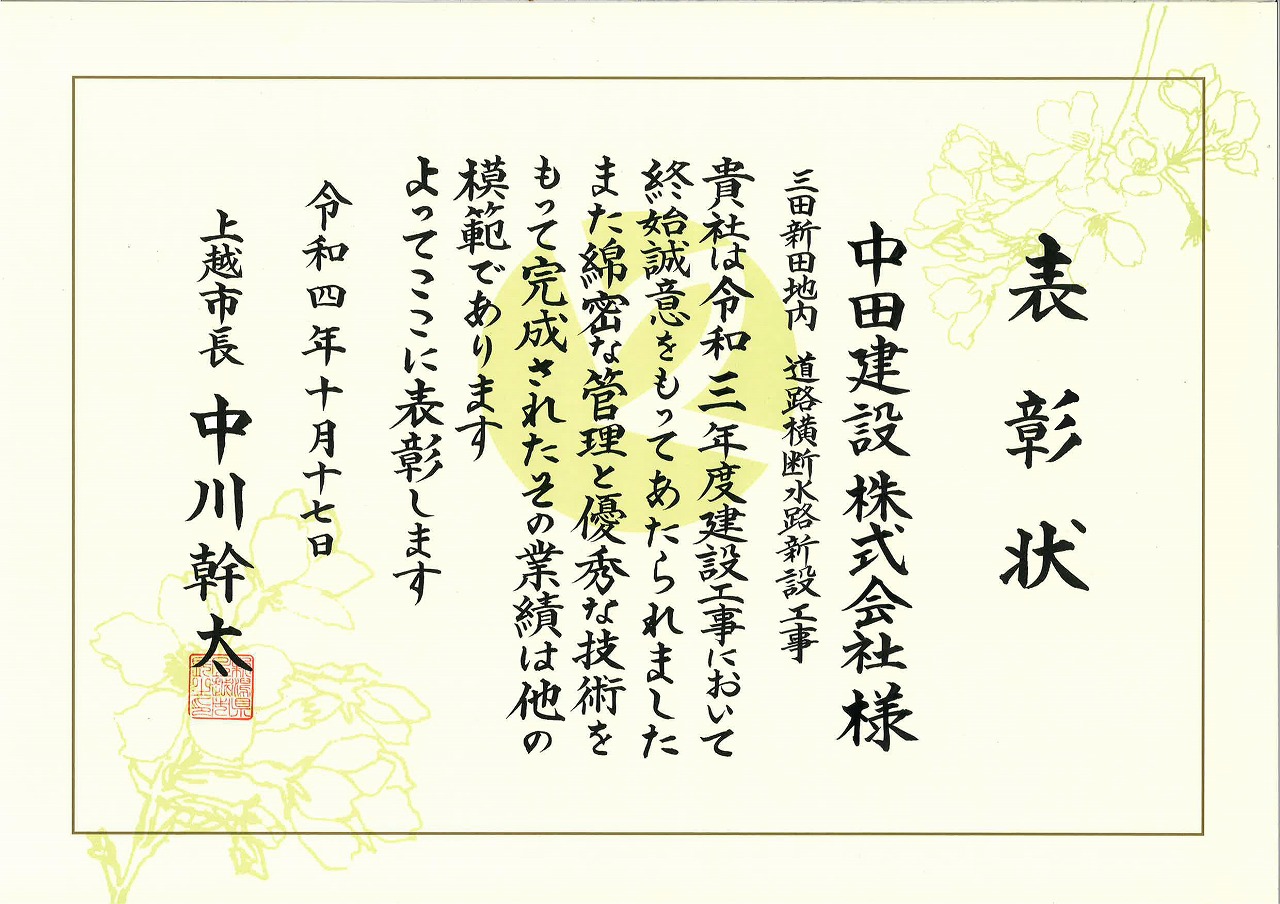 表彰状
中田建設株式会社様
三田新田地内 道路横断水路新設工事
貴社は令和三年度建設工事において
終始誠意をもってあたられました
また綿密な管理と優秀な技術を
もって完成されたその業績は他の
模範であります
よってここに表彰します
令和四年十月十七日
上越市長 中川幹太